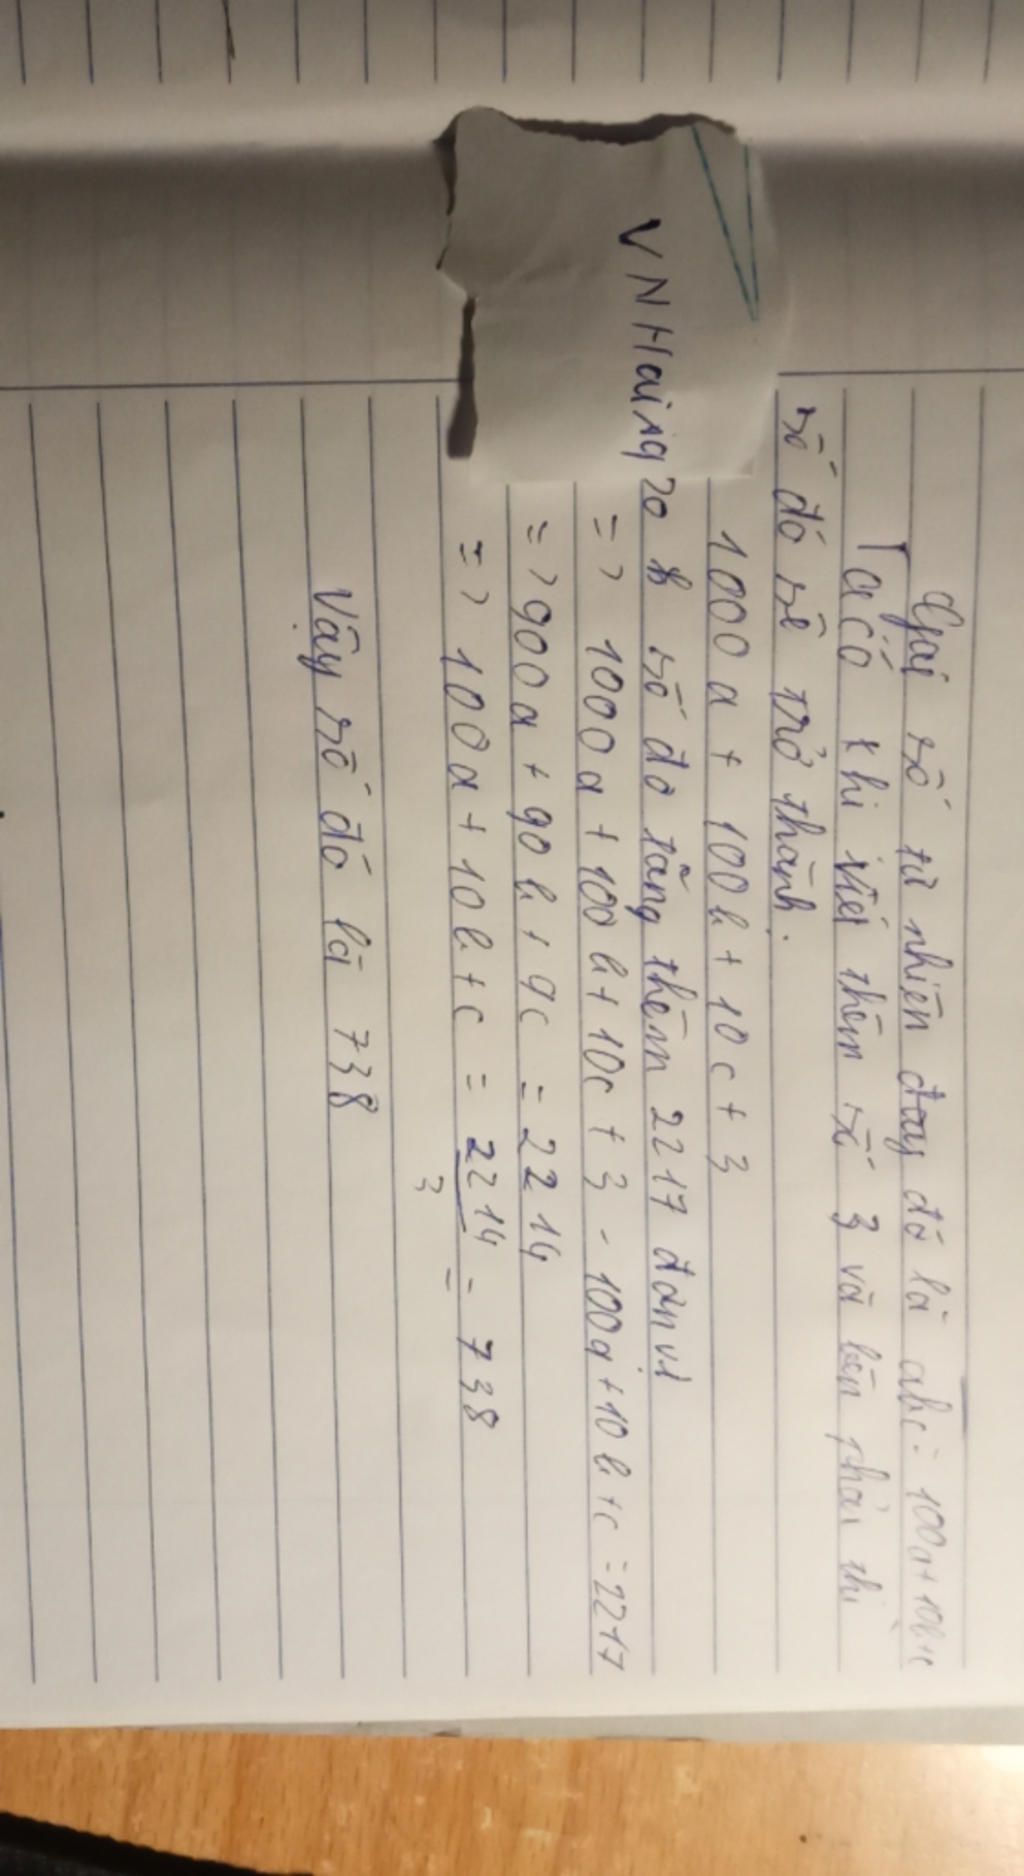 Gọi số tự nhiên đay đó là abc = 100a + 10b + c
Ta có khi viết thêm số 3 và bên phải thì
số đó sẽ trở thành.
1000a + 100b + 10c + 3
số đó tăng thêm 2217 đơn vị
VNHaing20
=> 1000a + 100b + 10c + 3 - 100a + 10b + c = 2217
=> 900a + 90b + 9c = 2214
=> 100a + 10b + c = 2214 = 738
3
Vậy số đó là 738